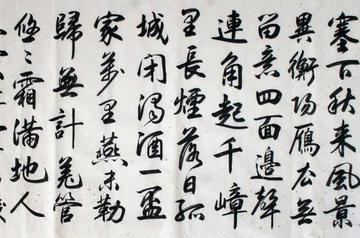 塞下秋来風景
異衡陽雁去無
留意四面邊聲
連角起千嶂
里長煙落日孤
城閉濁酒一盃
家萬里燕未勒
歸無計羌管
悠々霜滿地人